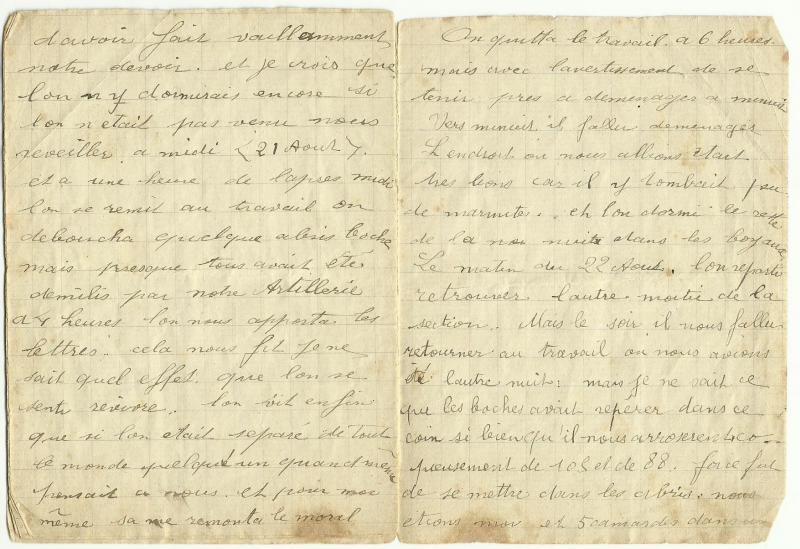 davoir fait vaillamment
notre devoir. et je crois que
lon n y dormirais encore si
lon n etait pas venu nous
reveiller a midi (21 Aout).
et a une heure de lapres midi
lon se remit au travail on
deboucha quelque abris boche
mais presque tous avait été
démilis par notre Artillerie
a 4 heures lon nous apporta les
lettres. cela nous fit je ne
sait quel effet. que lon se
senti revivre. lon vit enfin
que si lon etait separé de tout
le monde quelqu'un quand même
pensait a nous. et pour moi
même sa me remonta le moral
On quitta le travail a 6 heures.
mais avec lavertissement de se
tenir pres a demenages a minuit
Vers minuit il fallu demenages
Lendroit ou nous allions etait
tres bons car il y tombait peu
de marmites. et lon dormi le reste
de la nuit dans les boyaux
Le matin du 22 Aout. lon reparti
retrouver lautre moitié de la
section. Mais le soir il nous fallu
retourner au travail ou nous avions
été lautre nuit: mais je ne sait ce
que les boches avait repérer dans ce
coin si bien qu'il nous arroserent co-
pieusement de 105 et de 88. force fut
de se mettre dans les abris. nous
étions moi et 5 camardes dans un